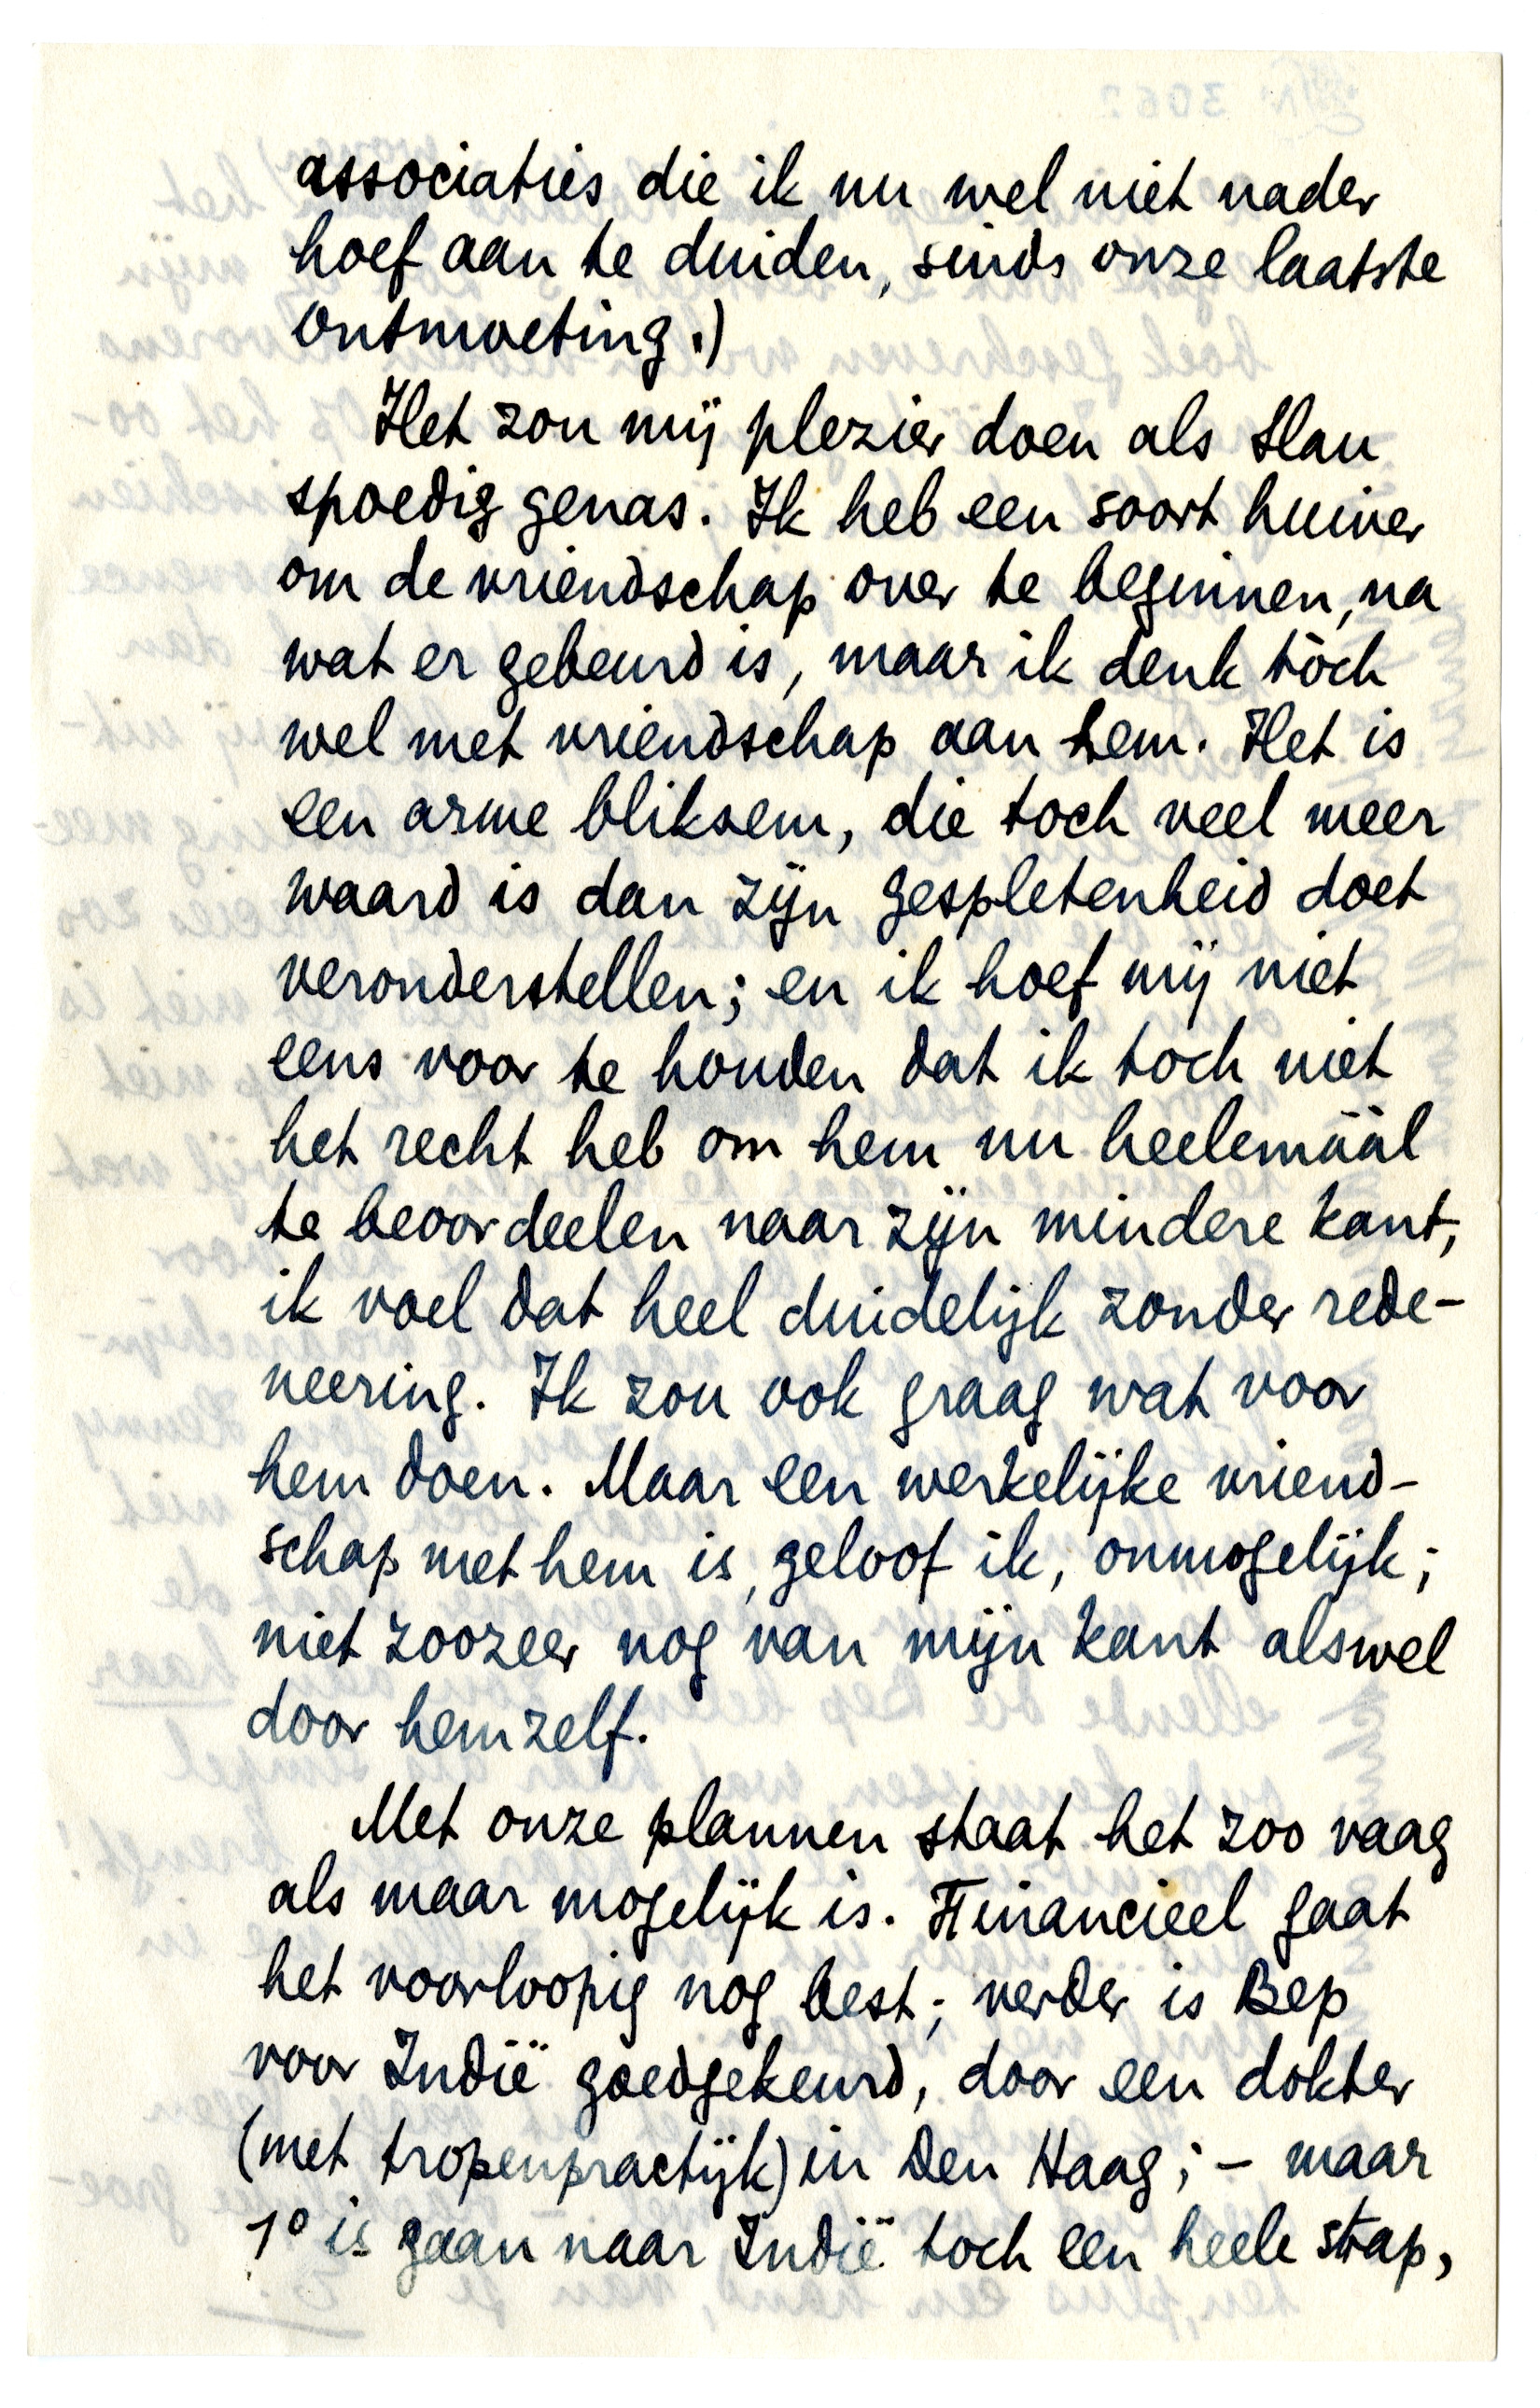 associaties die ik nu wel niet nader
hoef aan te duiden, sinds onze laatste
ontmoeting.)
Het zou mij plezier doen als Slau
spoedig genas. Ik heb een soort huiver
om de vriendschap over te beginnen, na
wat er gebeurd is, maar ik denk tòch
wel met vriendschap aan hem. Het is
een arme bliksem, die toch veel meer
waard is dan zijn gespletenheid doet
veronderstellen; en ik hoef mij niet
eens voor te houden dat ik toch niet
het recht heb om hem nu heelemáàl
te beoordeelen naar zijn mindere kant,
ik voel dat heel duidelijk zonder rede-
neering. Ik zou ook graag wat voor
hem doen. Maar een werkelijke vriend-
schap met hem is, geloof ik, onmogelijk;
niet zoozeer nog van mijn kant alswel
door hemzelf.
Met onze plannen staat het zoo vaag
als maar mogelijk is. Financieel gaat
het voorloopig nog best; verder is Bep
voor Indië goedgekeurd, door een dokter
(met tropenpractijk) in Den Haag; – maar
1° is gaan naar Indië toch een heele stap,